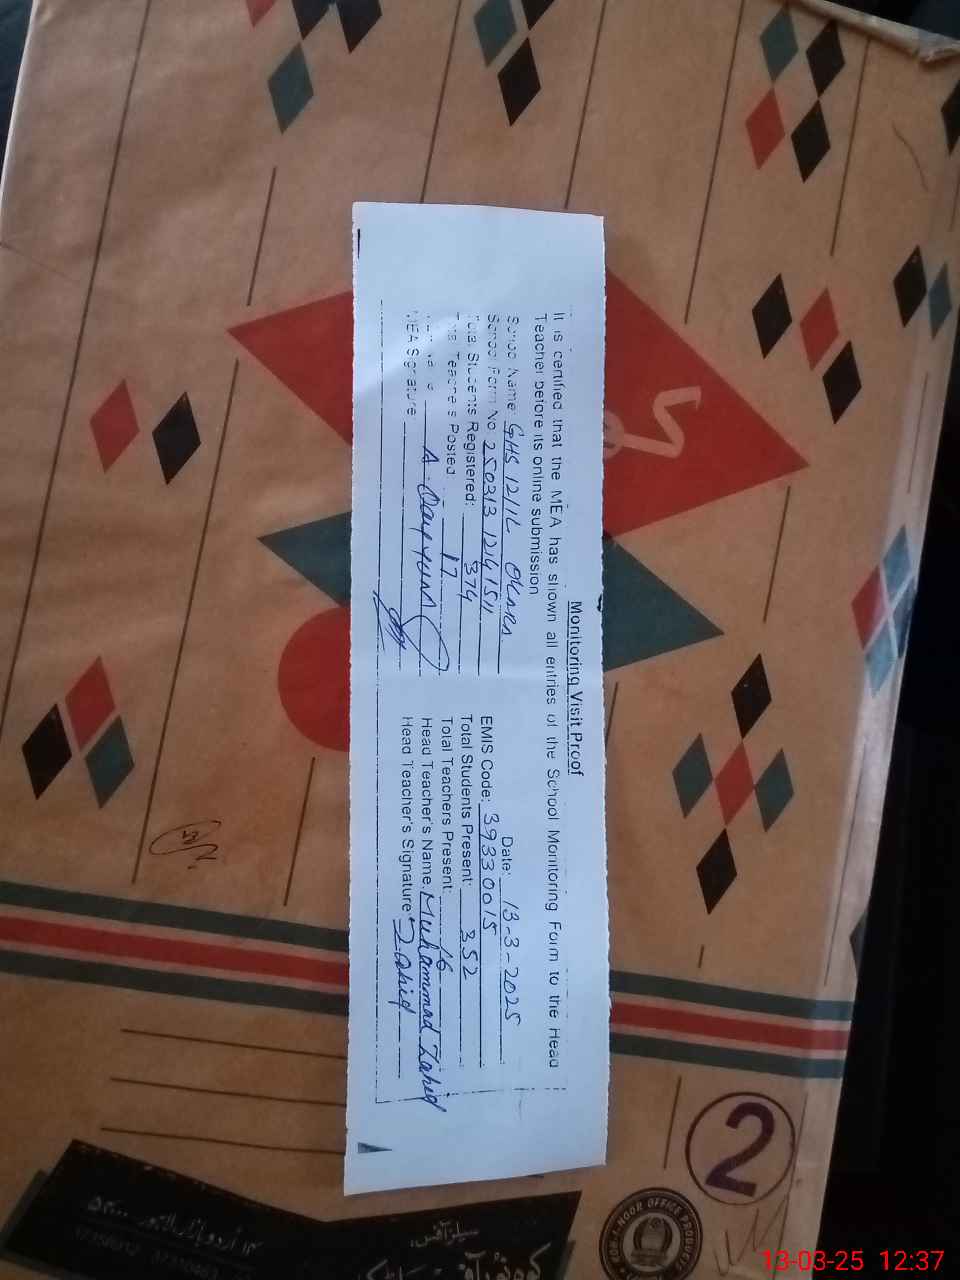 Monitoring Visit Proof
It is certified that the MEA has shown all entries of the School Monitoring Form to the Head
Teacher before its online submission
Date: 13-3-2025
School Name: GHS 12/1L Okara
EMIS Code: 39330015
School Form No. 250313 1214151
Total Students Present: 352
Total Students Registered: 374
Total Teachers Present: 16
Total Teachers Posted 17
Head Teacher's Name: Muhammad Zahid
A. Qayyum
Head Teacher's Signature: Zahid
MEA Signature:
2
NOOR OFFICE PRODUCTS
سیلز آفس:
۱۴ اردو بازار لاہور ۵۴۰۰۰
13-03-25 12:37